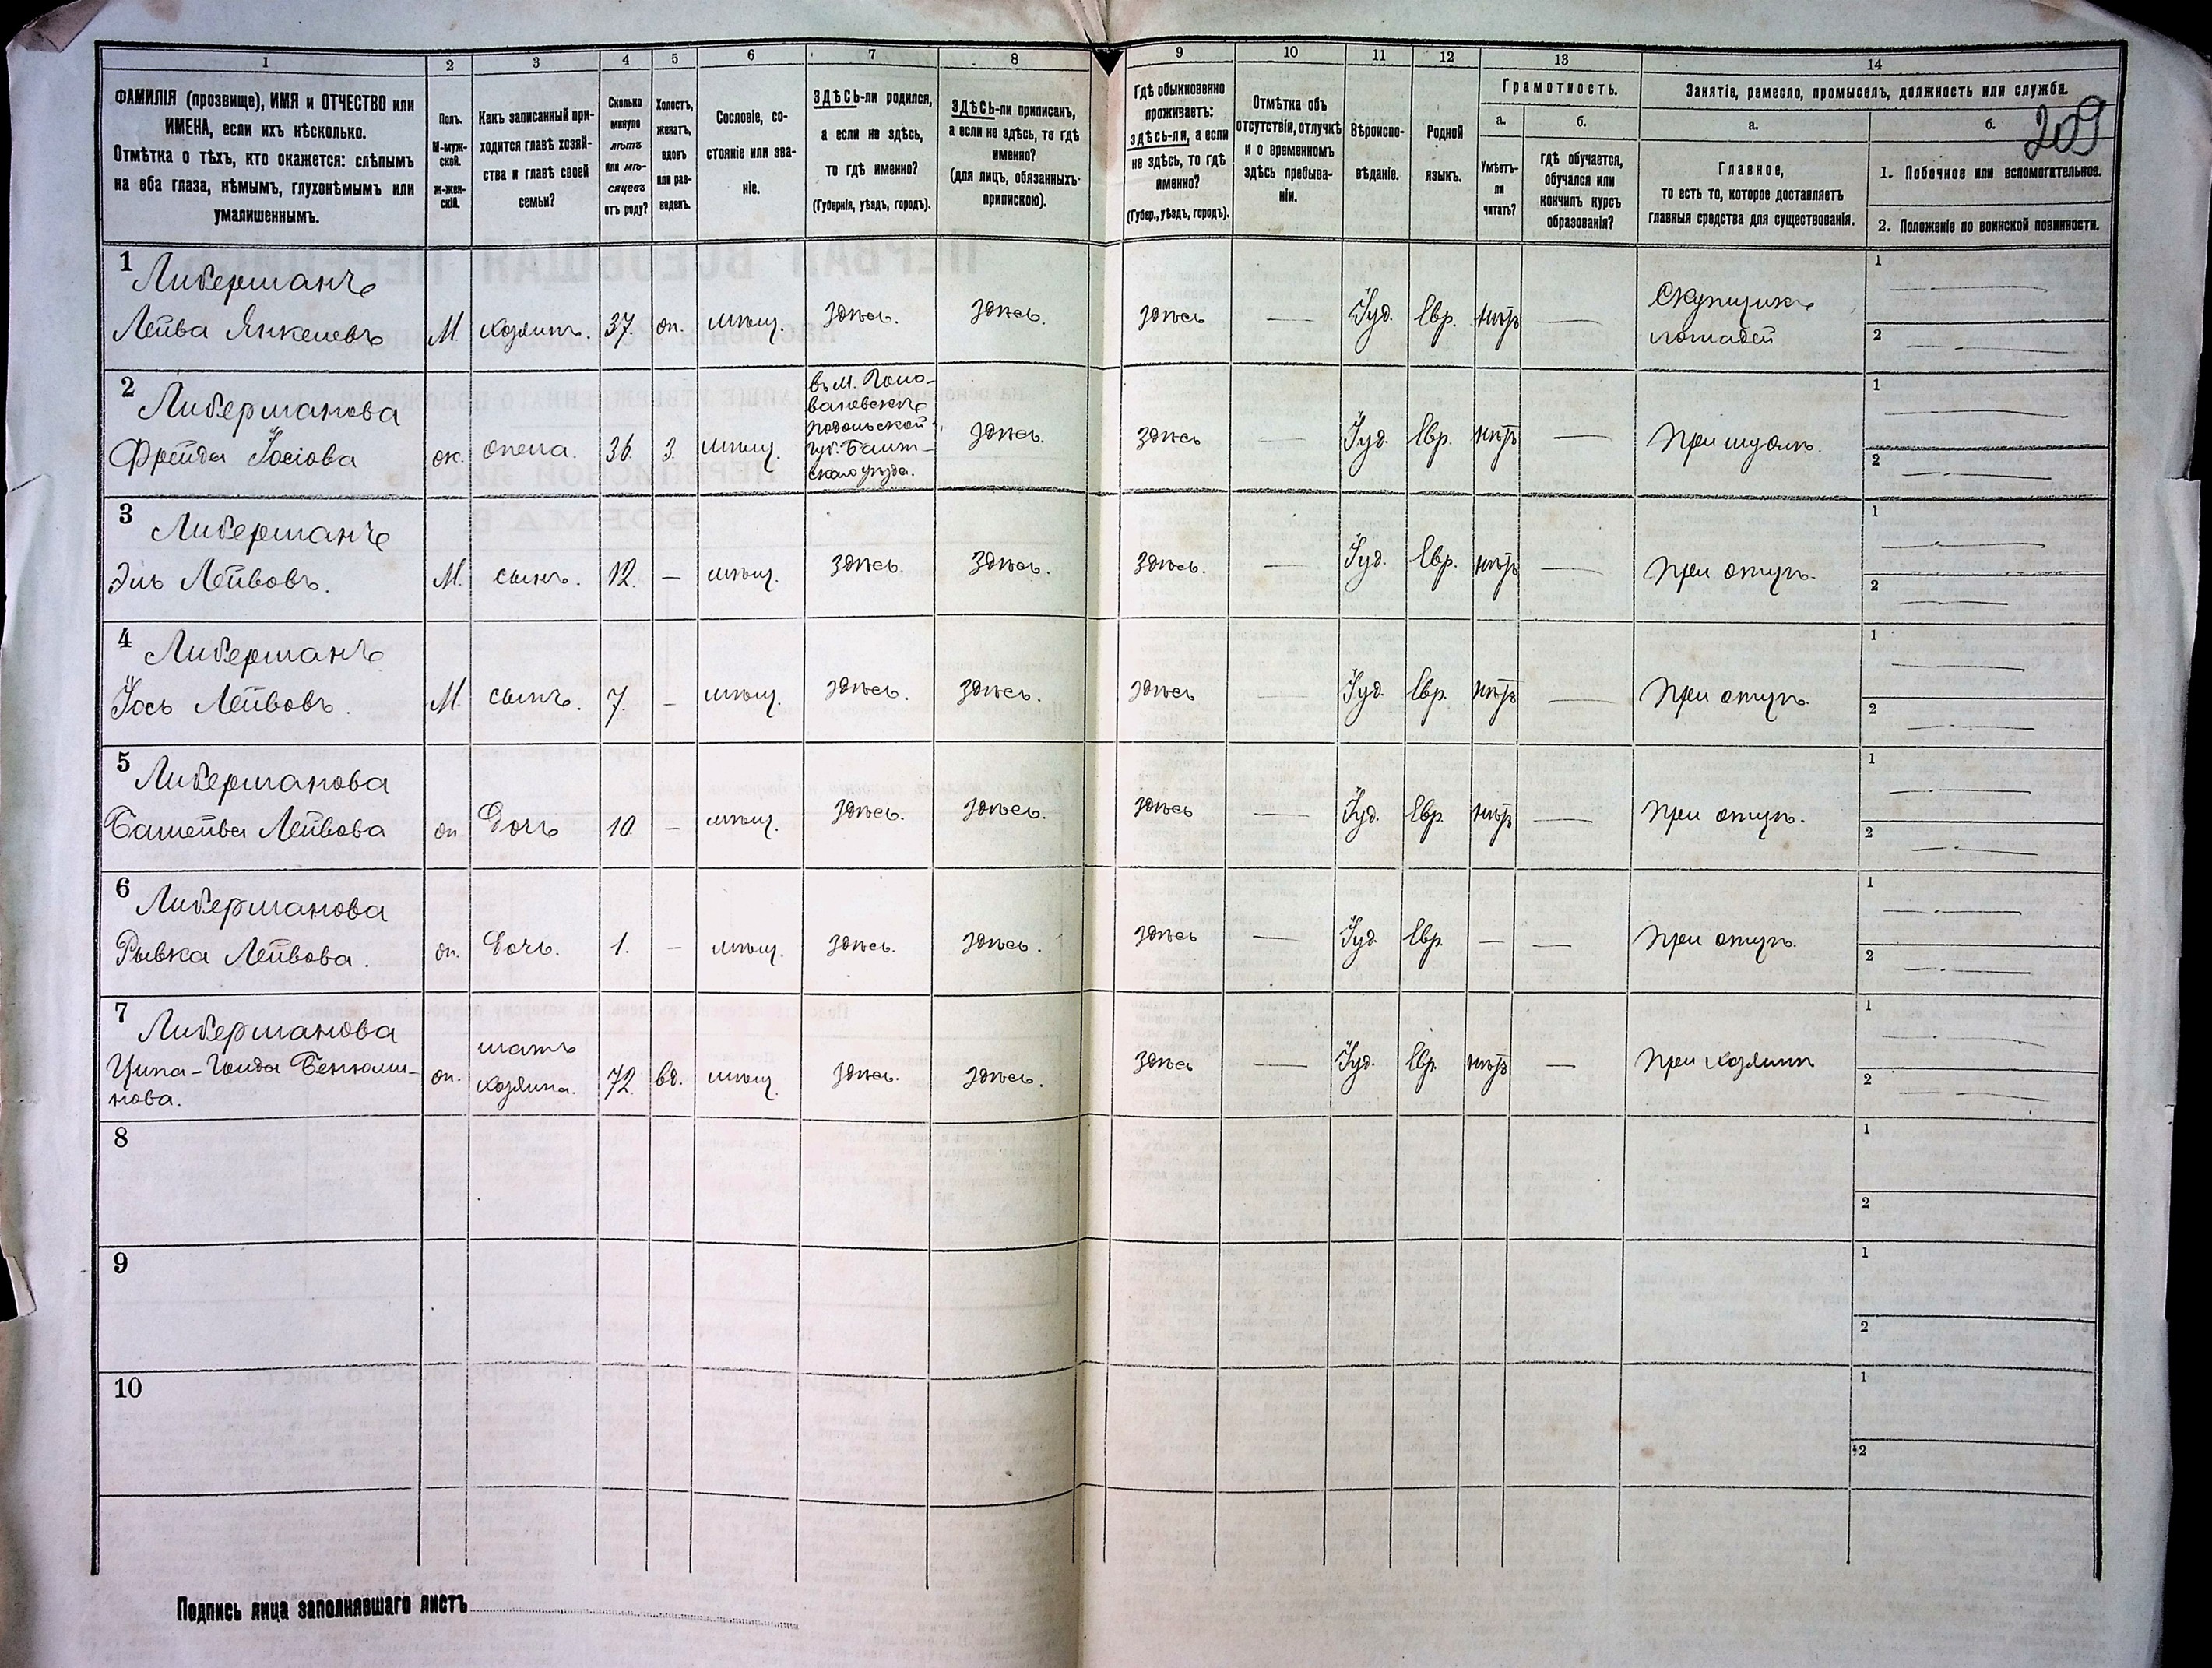 1 2 3 4 5 6 7 8 9 10 11 12 13 14
ФАМИЛІЯ (прозвище), ИМЯ и ОТЧЕСТВО или
ИМЕНА, если ихъ нѣсколько.
Отмѣтка о тѣхъ, кто окажется: слѣпымъ
на оба глаза, нѣмымъ, глухонѣмымъ или
умалишеннымъ.
Полъ.
М-муж-
ской.
ж-жен-
скій.
Какъ записанный при-
ходится главѣ хозяй-
ства и главѣ своей
семьи?
Сколько
минуло
лѣтъ
или мѣ-
сяцевъ
отъ роду?
Холостъ,
женатъ,
вдовъ
или раз-
веденъ.
Сословіе, со-
стояніе или зва-
ніе.
ЗДѢСЬ-ли родился,
а если не здѣсь,
то гдѣ именно?
(Губернія, уѣздъ, городъ).
ЗДѢСЬ-ли приписанъ,
а если не здѣсь, то гдѣ
именно?
(для лицъ, обязанныхъ
припискою).
Гдѣ обыкновенно
проживаетъ:
ЗДѢСЬ-ли, а если
не здѣсь, то гдѣ
именно?
(Губер., уѣздъ, городъ).
Отмѣтка объ
отсутствіи, отлучкѣ
и о временномъ
здѣсь пребыва-
ніи.
Вѣроиспо-
вѣданіе.
Родной
языкъ.
Грамотность.
а.
Умѣетъ-
ли
читать?
б.
гдѣ обучается,
обучался или
кончилъ курсъ
образованія?
Занятіе, ремесло, промыселъ, должность или служба.
а.
Главное,
то есть то, которое доставляетъ
главныя средства для существованія.
б.
209
1. Побочное или вспомогательное.
2. Положеніе по воинской повинности.
1 Либерманъ
Лейва Янкелевъ М. хозяинъ. 37. жн. мѣщ. здѣсь. здѣсь. здѣсь — Іуд. Евр. нѣтъ — Скупщикъ
лошадей
1 —
2 —
2 Либерманова
Фрейда Іосіова ж. жена. 36. з. мѣщ.
въ м. Голо-
ваневскѣ
Подольской
губ. Балт-
скаго уѣзда.
здѣсь. здѣсь — Іуд. Евр. нѣтъ — при мужѣ.
1 —
2 —
3 Либерманъ
Эль Лейвовъ. М. сынъ. 12. — мѣщ. здѣсь. здѣсь. здѣсь. — Іуд. Евр. нѣтъ — при отцѣ.
1 —
2 —
4 Либерманъ
Іось Лейвовъ. М. сынъ. 7. — мѣщ. здѣсь. здѣсь. здѣсь — Іуд. Евр. нѣтъ — при отцѣ.
1 —
2 —
5 Либерманова
Башейва Лейвова ж. дочь 10. — мѣщ. здѣсь. здѣсь. здѣсь — Іуд. Евр. нѣтъ — при отцѣ.
1 —
2 —
6 Либерманова
Рывка Лейвова. ж. дочь. 1. — мѣщ. здѣсь. здѣсь. здѣсь — Іуд. Евр. — — при отцѣ.
1 —
2 —
7 Либерманова
Ципа-Гольда Бенюми-
нова. ж. мать
хозяина. 72. вд. мѣщ. здѣсь. здѣсь. здѣсь — Іуд. Евр. нѣтъ — при хозяинѣ
1 —
2 —
8
1
2
9
1
2
10
1
2
Подпись лица заполнявшаго листъ